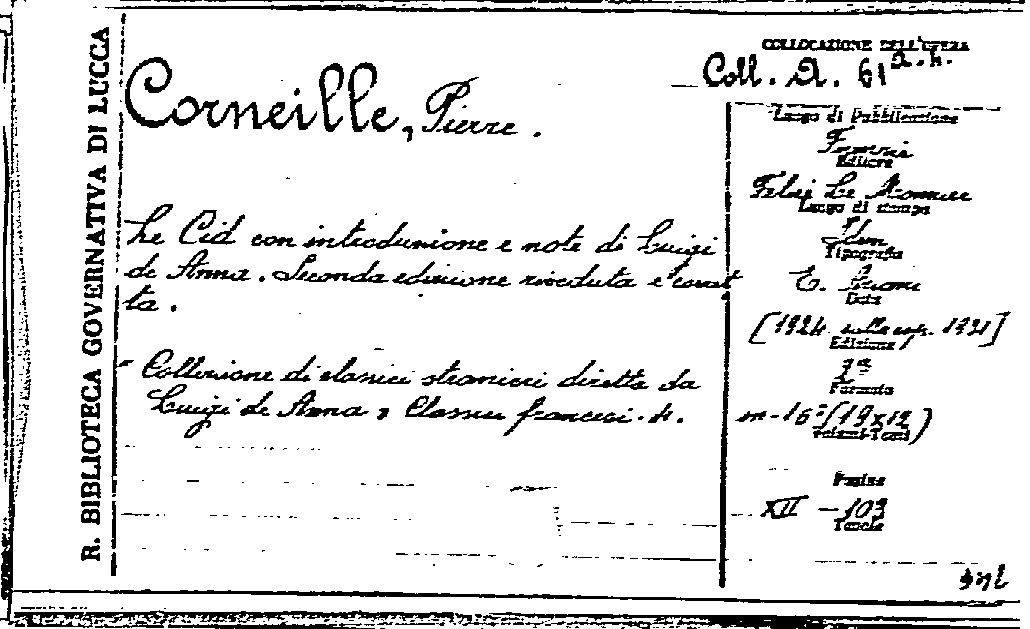 R. BIBLIOTECA GOVERNATIVA DI LUCCA
COLLOCAZIONE DELL'OPERA
Coll. A. 61 a.4.
Corneille, Pierre.
Le Cid con introduzione e note di Luigi
de Anna. Seconda edizione riveduta e corret
ta.
- Collezione di classici stranieri diretta da
Luigi de Anna, Classici francesi. 4.
Luogo di Pubblicazione
Firenze
Editore
Felice Le Monnier
Luogo di stampa
Idem
Tipografia
E.
Data
[1924 sulla cop. 1921]
Edizione
2ª
Formato
in-16° (19x12)
Volumi-Tomi
Pagine
XII - 103
Tavole